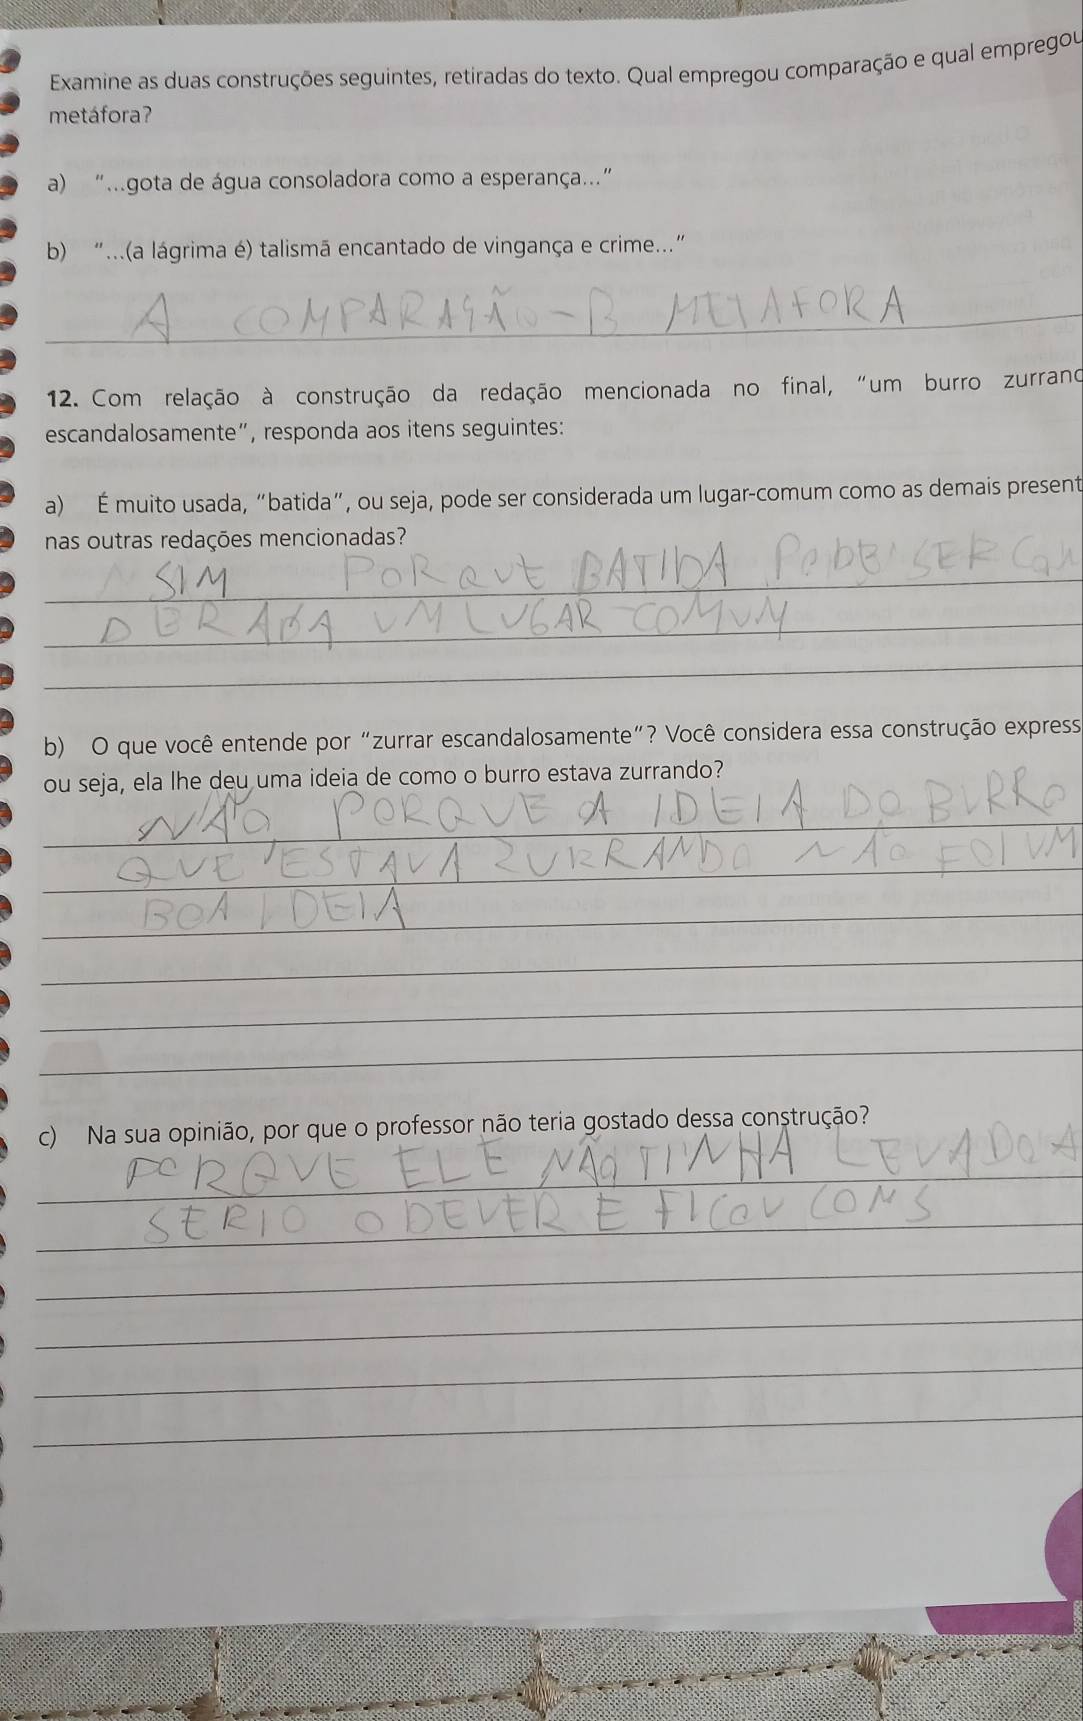 Examine as duas construções seguintes, retiradas do texto. Qual empregou comparação e qual empregou
metáfora?
a) "...gota de água consoladora como a esperança..."
b) "...(a lágrima é) talismã encantado de vingança e crime..."
A COMPARAÇÃO - B METAFORA
12. Com relação à construção da redação mencionada no final, "um burro zurrand
escandalosamente", responda aos itens seguintes:
a) É muito usada, "batida", ou seja, pode ser considerada um lugar-comum como as demais present
nas outras redações mencionadas?
SIM PORQUE BATIDA PODE SER CON
DERADA UM LUGAR COMUM
b) O que você entende por "zurrar escandalosamente"? Você considera essa construção express
ou seja, ela lhe deu uma ideia de como o burro estava zurrando?
NÃO PORQUE A IDEIA DO BURRO
QUE ESTAVA ZURRANDO NÃO FOI UM
BOA IDEIA
c) Na sua opinião, por que o professor não teria gostado dessa construção?
PORQUE ELE NÃO TINHA LEVADO A
SERIO O DEVER E FICOU CONS